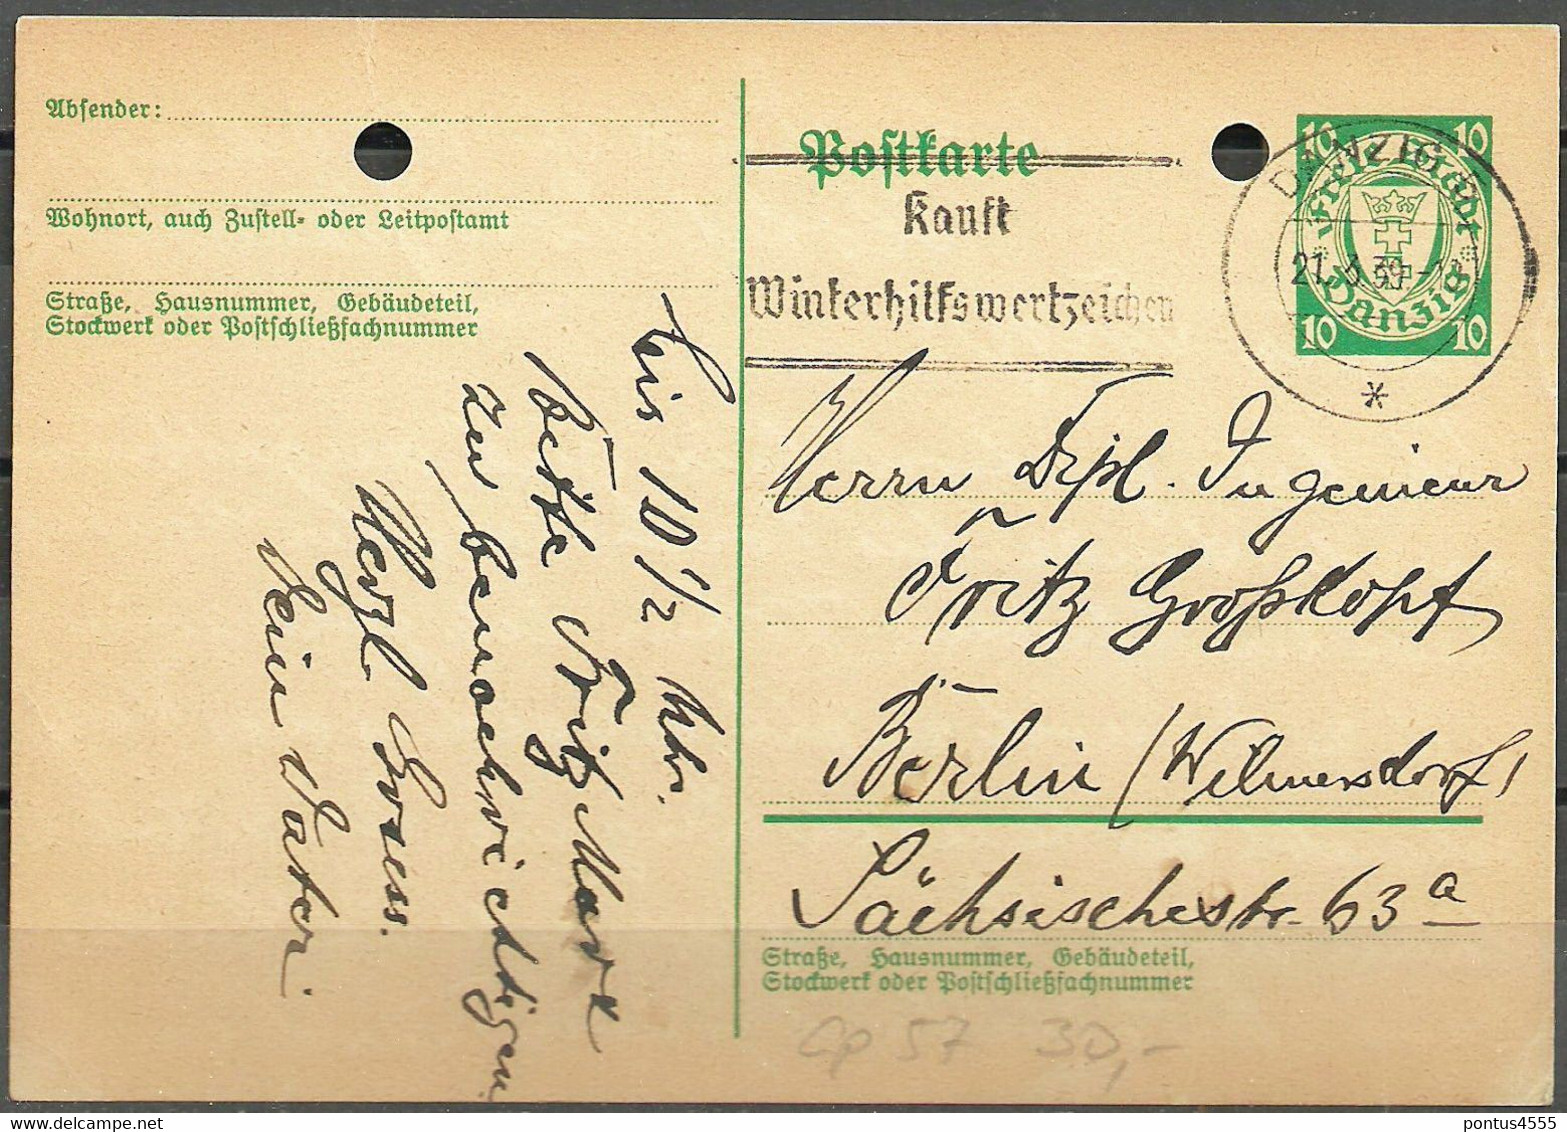 Absender:
Wohnort, auch Zustell- oder Leitpostamt
Straße, Hausnummer, Gebäudeteil,
Stockwerk oder Postschließfachnummer
bis 10 1/2 Uhr.
Bitte Fritz Mark
zu benachrichtigen
Herzl. Gruss.
Dein Vater.
Postkarte
Kauft
Winterhilfswertzeichen
DANZIG 5
21.3.39
*
10 10
Freie Stadt
Danzig
10 10
Herrn Dipl. Ingenieur
Fritz Großkopf
Berlin (Wilmersdorf)
Sächsischestr. 63a
Straße, Hausnummer, Gebäudeteil,
Stockwerk oder Postschließfachnummer
Cp 57 30,-
pontus4555